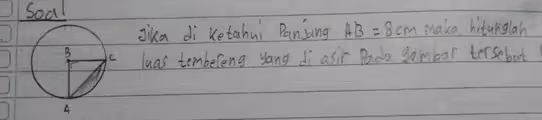 Soal
Jika di ketahui Panjang AB = 8 cm maka hitunglah
B
C
luas tembereng yang di asir Pada gambar tersebut !
A